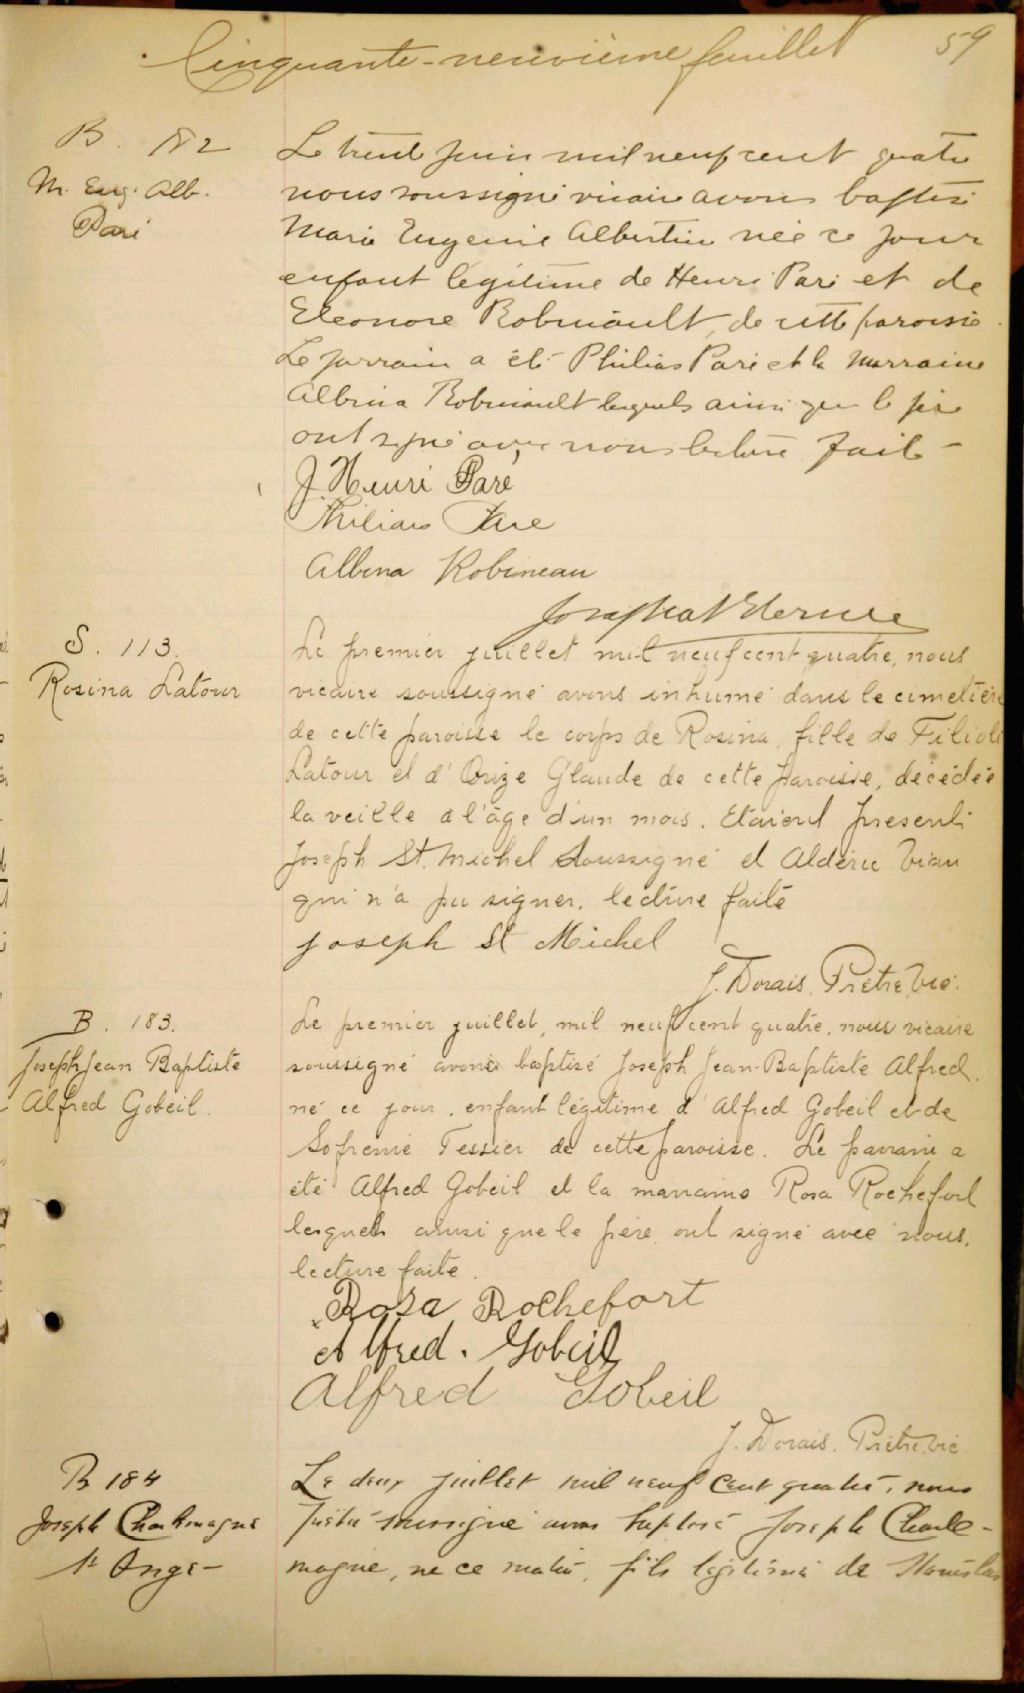 Cinquante-neuvième feuillet 59
B. 182
M. Eug. Alb.
Paré
Le trente juin mil neuf cent quatre
nous soussigné vicaire avons baptisé
Marie Eugenie Albertine née ce jour
enfant legitime de Henri Paré et de
Eleonore Robineault, de cette paroisse.
Le parrain a été Philias Paré et la marraine
Albina Robineault lesquels ainsi que le père
ont signé avec nous lecture faite –
J. Henri Paré
Philias Paré
Albina Robineau
S. 113.
Rosina Latour
Le premier juillet mil neuf cent quatre, nous
vicaire soussigné avons inhumé dans le cimetière
de cette paroisse le corps de Rosina, fille de
Latour et d'Onize Glaude de cette paroisse, décédée
la veille a l'âge d'un mois. Etaient presents
Joseph St. Michel soussigné et Aldéric Viau
qui n'a pu signer. lecture faite
Joseph St Michel
J. Dorais. Prêtre Vic.
B. 183.
Joseph Jean Baptiste
Alfred Gobeil.
Le premier juillet, mil neuf cent quatre, nous vicaire
soussigné avons baptisé Joseph Jean-Baptiste Alfred.
né ce jour, enfant légitime d'Alfred Gobeil et de
Sofrenie Tessier de cette paroisse. Le parrain a
été Alfred Gobeil et la marraine Rosa Rochefort
lesquels ainsi que le père ont signé avec nous.
lecture faite.
Rosa Rochefort
Alfred. Gobeil
Alfred Gobeil
J. Dorais. Prêtre. vic
B 184
Joseph Charlemagne
St Ange –
Le deux juillet mil neuf cent quatre, nous
prêtre soussigné avons baptisé Joseph Charle-
magne, né ce matin, fils légitime de Stanislas